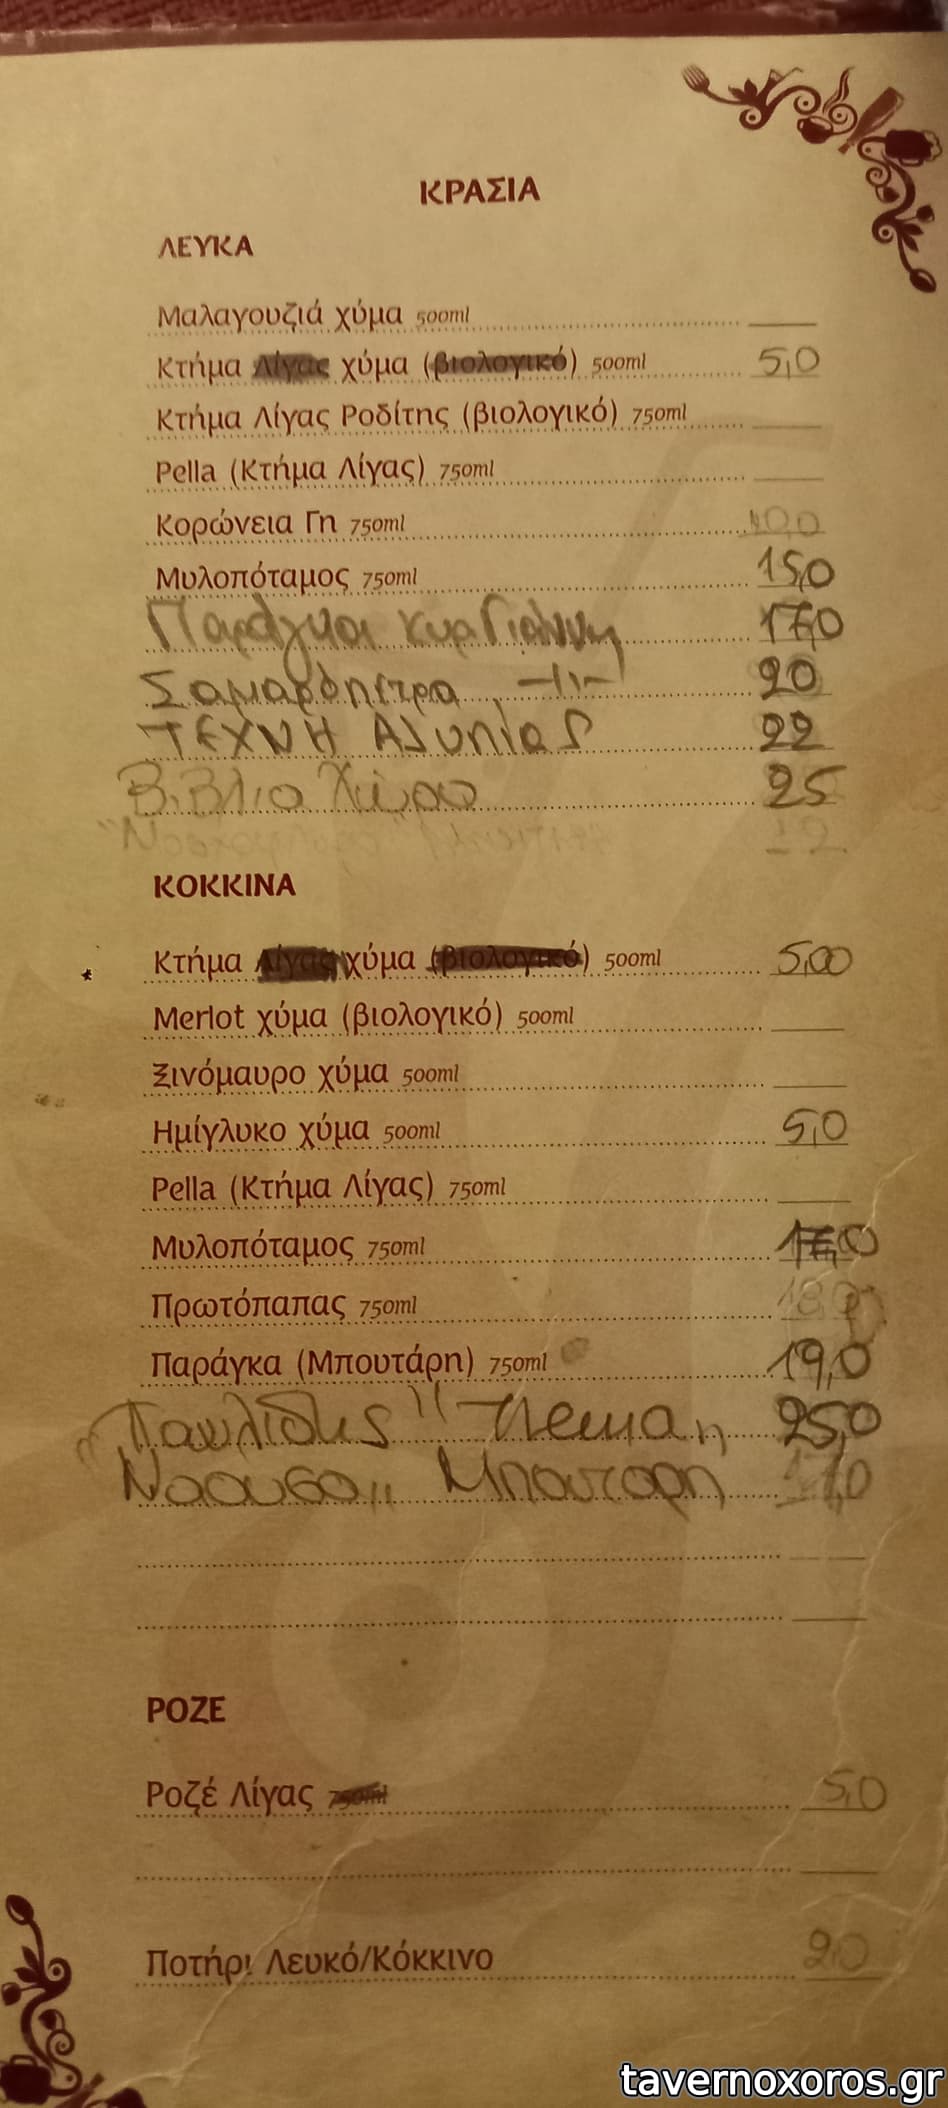 ΚΡΑΣΙΑ
ΛΕΥΚΑ
Μαλαγουζιά χύμα 500ml
Κτήμα Λίγας χύμα (βιολογικό) 500ml 5,0
Κτήμα Λίγας Ροδίτης (βιολογικό) 750ml
Pella (Κτήμα Λίγας) 750ml
Κορώνεια Γη 750ml
Μυλοπόταμος 750ml 15,0
Παράγκα Κυρ Γιάννη 17,0
Σαμαρόπετρα 20
ΤΕΧΝΗ Αλυπίας 22
Βιβλιο Χώρα 25
12
ΚΟΚΚΙΝΑ
Κτήμα Λίγας χύμα (βιολογικό) 500ml 5,00
Merlot χύμα (βιολογικό) 500ml
Ξινόμαυρο χύμα 500ml
Ημίγλυκο χύμα 500ml 5,0
Pella (Κτήμα Λίγας) 750ml
Μυλοπόταμος 750ml
Πρωτόπαπας 750ml 18,0
Παράγκα (Μπουτάρη) 750ml 19,0
"Παυλίδης" Thema 25,0
Ναουσα Μπουταρη 17,0
ΡΟΖΕ
Ροζέ Λίγας 750ml 5,0
Ποτήρι Λευκό/Κόκκινο 2,0
tavernoxoros.gr